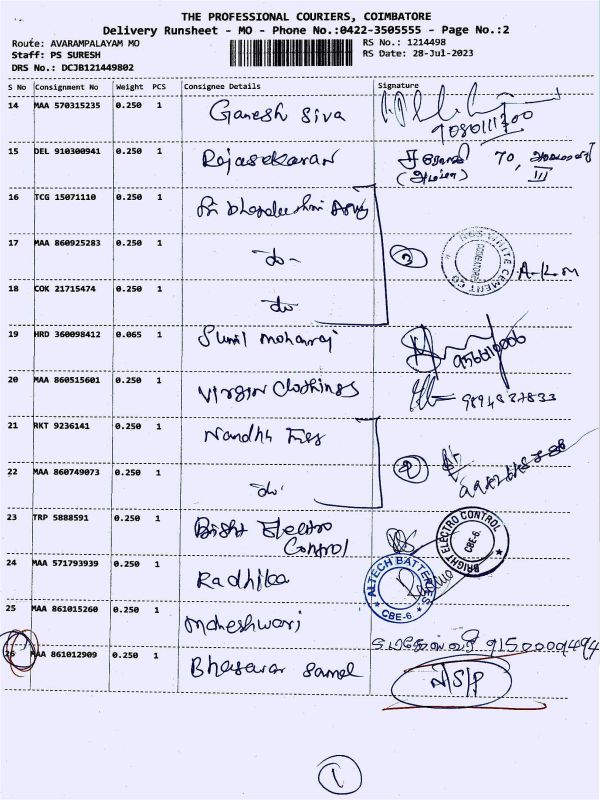 THE PROFESSIONAL COURIERS, COIMBATORE
Delivery Runsheet - MO - Phone No.:0422-3505555 - Page No.:2
Route: AVARAMPALAYAM MO
RS No.: 1214498
Staff: PS SURESH
RS Date: 28-Jul-2023
DRS No.: DCJB121449802
S No Consignment No Weight PCS Consignee Details Signature
14 MAA 570315235 0.250 1 Ganesh Siva
15 DEL 910300941 0.250 1 Rajasekaran
70,
III
16 TCG 15071110 0.250 1
17 MAA 860925283 0.250 1 do
3
WHITE CEMENT CO
A.K.M
18 COK 21715474 0.250 1 do
19 HRD 360098412 0.065 1 Sunil mohanraj
20 MAA 860515601 0.250 1 Virgin Clothings
21 RKT 9236141 0.250 1 Nandhu
22 MAA 860749073 0.250 1 do
2
23 TRP 5888591 0.250 1 Bright Electro
Control
BRIGHT ELECTRO CONTROL
CBE-6.
24 MAA 571793939 0.250 1 Radhika
ALTECH BATTERIES
CBE-6
25 MAA 861015260 0.250 1 Maheshwari
26 MAA 861012909 0.250 1
N/S/P
1